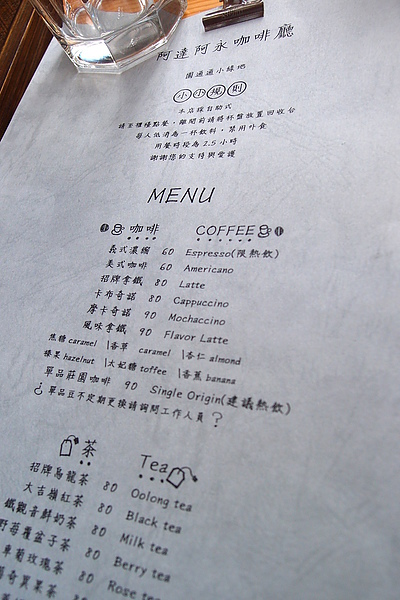 阿達阿永咖啡廳
圓通通小綠地
小小規則
本店採自助式
請至櫃檯點餐，離開前請將杯盤放置回收台
每人低消為一杯飲料，禁用外食
用餐時段為 2.5 小時
謝謝您的支持與愛護
MENU
咖啡 COFFEE
義式濃縮 60 Espresso(限熱飲)
美式咖啡 60 Americano
招牌拿鐵 80 Latte
卡布奇諾 80 Cappuccino
摩卡奇諾 90 Mochaccino
風味拿鐵 90 Flavor Latte
焦糖 caramel \香草 caramel \杏仁 almond
榛果 hazelnut \太妃糖 toffee \香蕉 banana
單品莊園咖啡 90 Single Origin(建議熱飲)
¿ 單品豆不定期更換請詢問工作人員 ?
茶 Tea
招牌烏龍茶 80 Oolong tea
大吉嶺紅茶 80 Black tea
鐵觀音鮮奶茶 80 Milk tea
野莓覆盆子茶 80 Berry tea
玫瑰茶 80 Rose tea
果茶 80